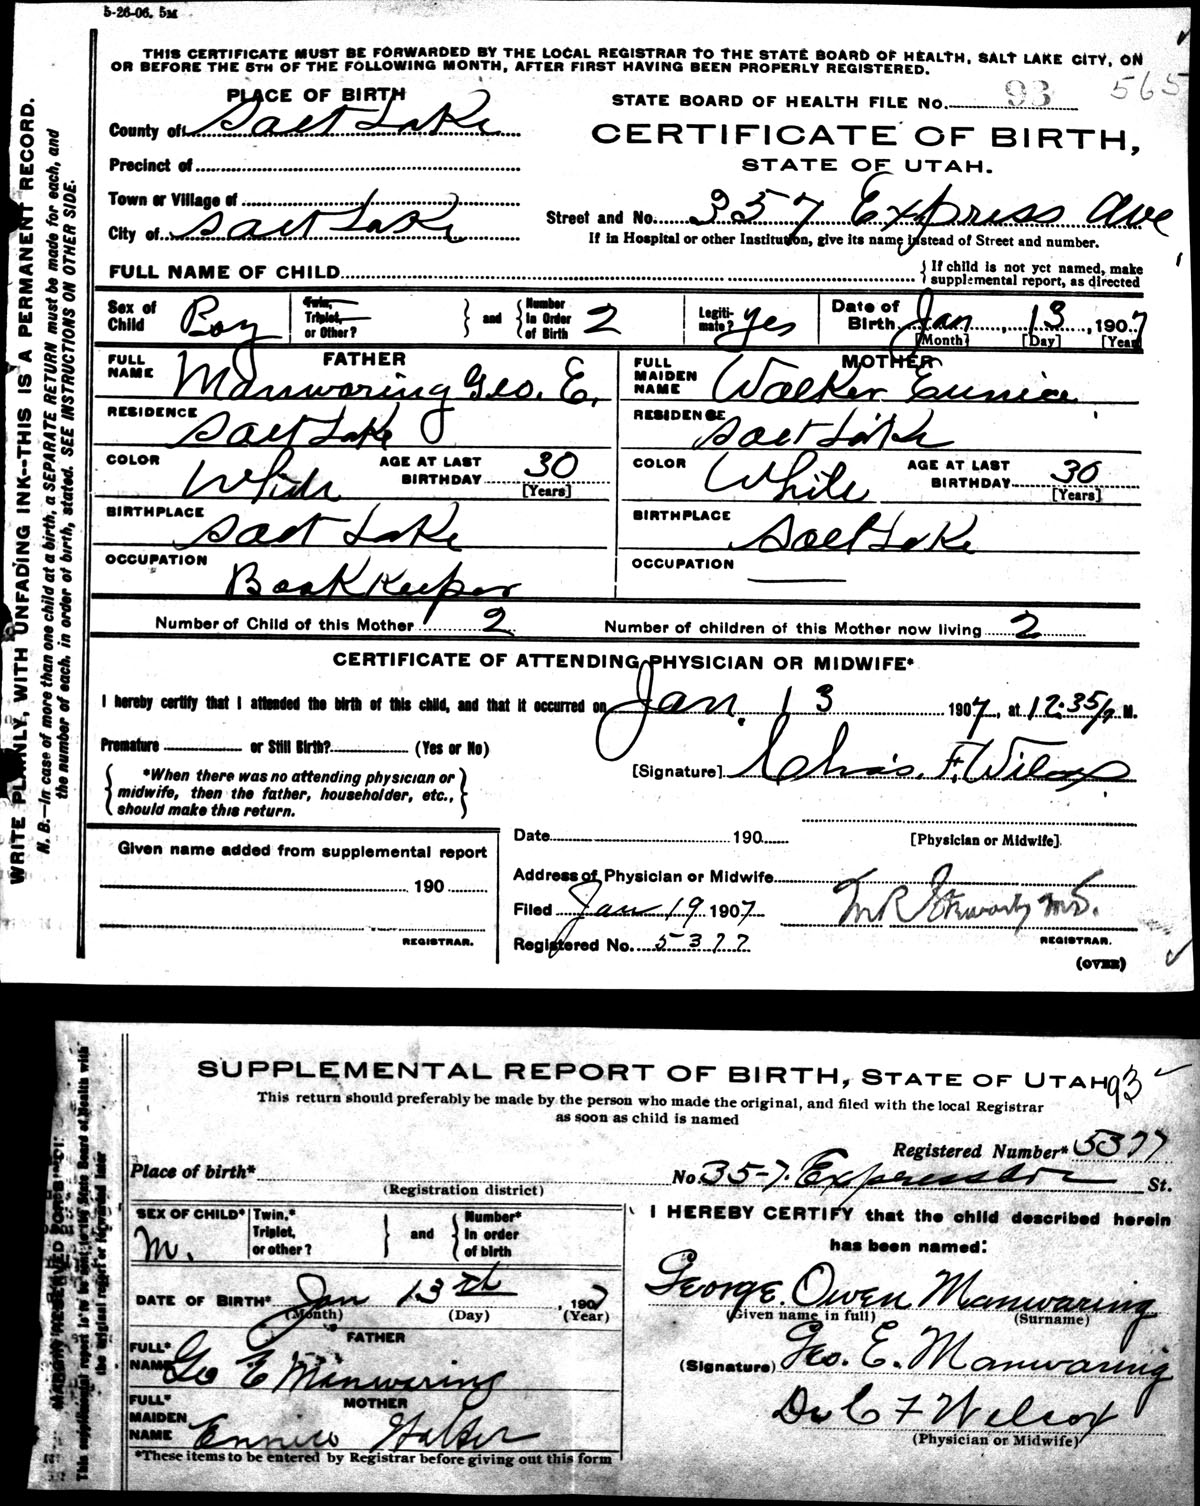 5-26-06. 5M
THIS CERTIFICATE MUST BE FORWARDED BY THE LOCAL REGISTRAR TO THE STATE BOARD OF HEALTH, SALT LAKE CITY, ON
OR BEFORE THE 5TH OF THE FOLLOWING MONTH, AFTER FIRST HAVING BEEN PROPERLY REGISTERED.
WRITE PLAINLY, WITH UNFADING INK--THIS IS A PERMANENT RECORD.
N. B.—In case of more than one child at a birth, a SEPARATE RETURN must be made for each, and
the number of each, in order of birth, stated. SEE INSTRUCTIONS ON OTHER SIDE.
PLACE OF BIRTH
STATE BOARD OF HEALTH FILE No. 93 565
County of Salt Lake
CERTIFICATE OF BIRTH,
STATE OF UTAH.
Precinct of
Town or Village of
Street and No. 357 Express Ave
City of Salt Lake
If in Hospital or other Institution, give its name instead of Street and number.
FULL NAME OF CHILD
If child is not yet named, make
supplemental report, as directed
Sex of Child Boy
Twin, Triplet, or Other?
and
Number in Order of Birth 2
Legitimate? yes
Date of Birth Jan 13, 1907
[Month] [Day] [Year]
FATHER
FULL NAME Manwaring Geo. E.
RESIDENCE Salt Lake
COLOR White AGE AT LAST BIRTHDAY 30 [Years]
BIRTHPLACE Salt Lake
OCCUPATION Book Keeper
MOTHER
FULL MAIDEN NAME Walker Eunice
RESIDENCE Salt Lake
COLOR White AGE AT LAST BIRTHDAY 30 [Years]
BIRTHPLACE Salt Lake
OCCUPATION
Number of Child of this Mother 2 Number of children of this Mother now living 2
CERTIFICATE OF ATTENDING PHYSICIAN OR MIDWIFE*
I hereby certify that I attended the birth of this child, and that it occurred on Jan. 13 1907, at 12:35 M.
Premature or Still Birth? (Yes or No)
[Signature] Chas. F. Wilcox
*When there was no attending physician or
midwife, then the father, householder, etc.,
should make this return.
Date 190 [Physician or Midwife].
Given name added from supplemental report
190
REGISTRAR.
Address of Physician or Midwife
Filed Jan 19 1907
Registered No. 5377
REGISTRAR.
(OVER)
SUPPLEMENTAL REPORT OF BIRTH, STATE OF UTAH 93
This return should preferably be made by the person who made the original, and filed with the local Registrar
as soon as child is named
Registered Number* 5377
Place of birth* No. 357 Express St.
(Registration district)
SEX OF CHILD* M.
Twin,* Triplet, or other?
and
Number* In order of birth
DATE OF BIRTH* Jan 13th, 1907
(Month) (Day) (Year)
FATHER
FULL* NAME Geo E Manwaring
MOTHER
FULL* MAIDEN NAME
*These items to be entered by Registrar before giving out this form
I HEREBY CERTIFY that the child described herein
has been named:
George Owen Manwaring
(Given name in full) (Surname)
(Signature) Geo. E. Manwaring
Dr C F Wilcox
(Physician or Midwife)
This supplemental report is to be sent to the State Board of Health with
the original report or forwarded later